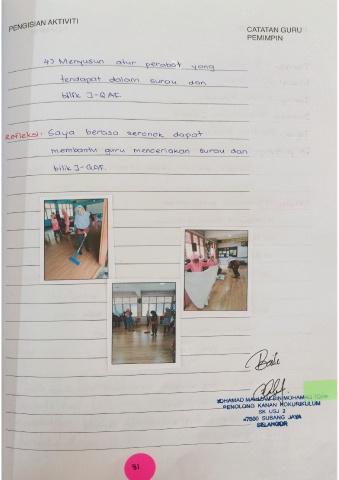 PENGISIAN AKTIVITI
CATATAN GURU
PEMIMPIN
4) Menyusun atur perabot yang
terdapat dalam surau dan
bilik J-QAF.
Refleksi: Saya berasa seronok dapat
membantu guru menceriakan surau dan
bilik J-QAF.
Baik
PENOLONG KANAN KOKURIKULUM
SK USJ 2
47600 SUBANG JAYA
SELANGOR
31